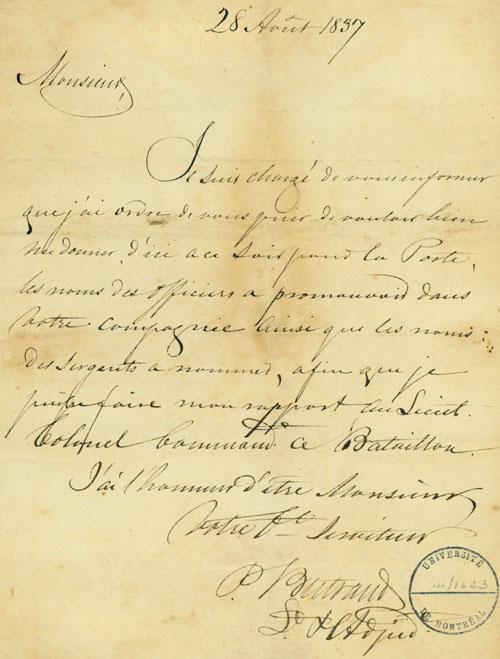 28 Août 1837
Monsieur,
Je suis chargé de vous informer
que j'ai ordre de vous prier de vouloir bien
me donner d'ici a ce soir pour la Poste,
les noms des officiers a promouvoir dans
votre compagnie ainsi que les noms
des sergents a nommer, afin que je
puisse faire mon rapport au Lieut.
Colonel Command.t ce Bataillon.
J'ai l'honneur d'être Monsieur
Votre Serviteur
P. Bertrand
Adjud
UNIVERSITÉ
/1623
DE MONTRÉAL